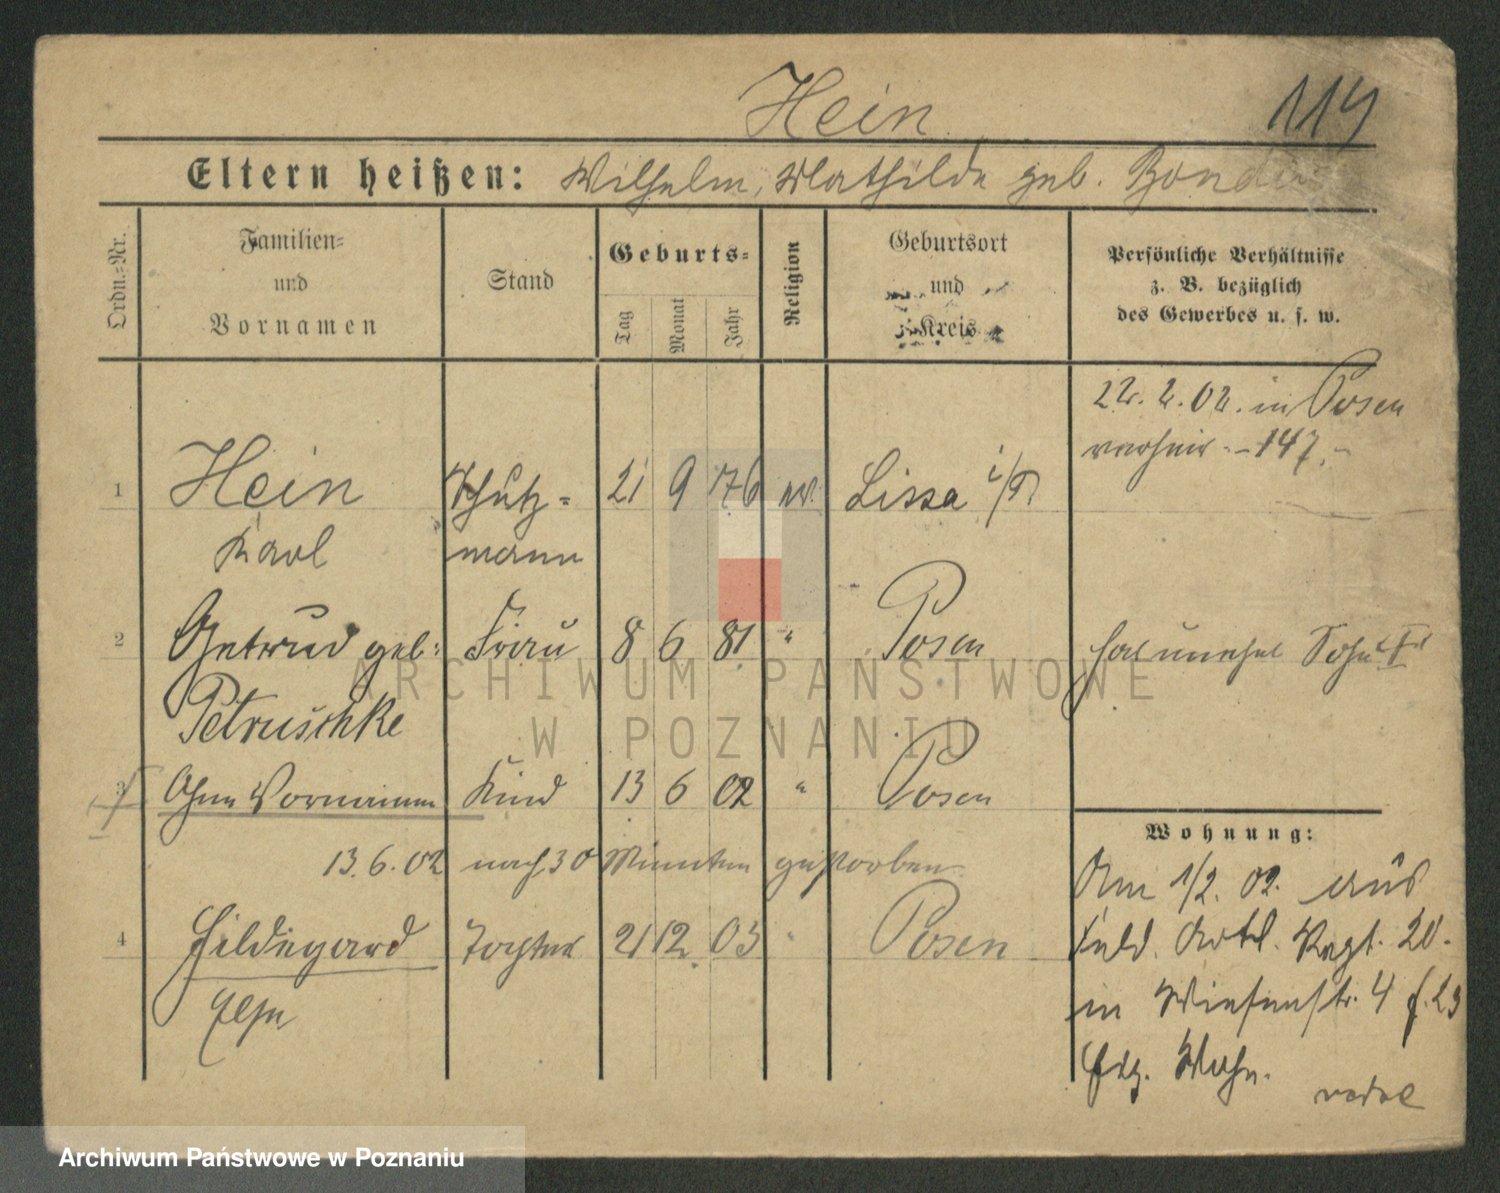 Hein
119
Eltern heißen: Wilhelm, Mathilde geb.
Ordn.-Nr.
Familien-
und
Vornamen
Stand
Geburts-
Tag
Monat
Jahr
Religion
Geburtsort
und
Kreis
Persönliche Verhältnisse
z. B. bezüglich
des Gewerbes u. s. w.
22. 2. 02. in Posen
verheir. - 147.-
1 Hein Schutz- 21 9 76 ev. Lissa i/P
Karl mann
2 Gertrud geb. Frau 8 6 81 " Posen
Petruschke
hat unehel Sohn
3 Ohne Vornamen Kind 13 6 02 " Posen
13.6.02 nach 30 Minuten gestorben
4 Hildegard Tochter 21 12 03 " Posen
Else
Wohnung:
Am 1/2. 02. aus
Feld. Artl. Regt. 20.
in Wiesenstr. 4
Wohn.
ARCHIWUM PAŃSTWOWE
W POZNANIU
Archiwum Państwowe w Poznaniu